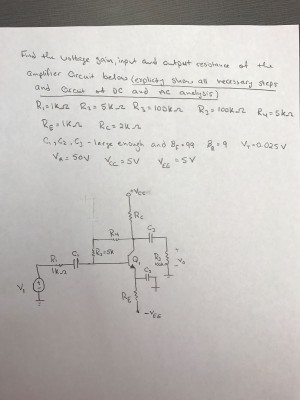 Find the voltage gain, input and output resistance of the
amplifier circuit below (explicitly show all necessary steps
and circuit of DC and AC analysis)
R₁=1kΩ R₂=5kΩ R₃=100kΩ R₃=100kΩ R₄=5kΩ
R_E=1kΩ R_C=2kΩ
C₁, C₂, C₃ - large enough and β_F=99 β_R=9 V_T=0.025V
V_A=50V V_CC=5V V_EE=5V
+V_CC
R_C
R₄
C₂
R₁
1kΩ
C₁
R₂=5k
Q₁
C₃
R₃
+
V₀
-
V_s
R_E
-V_EE